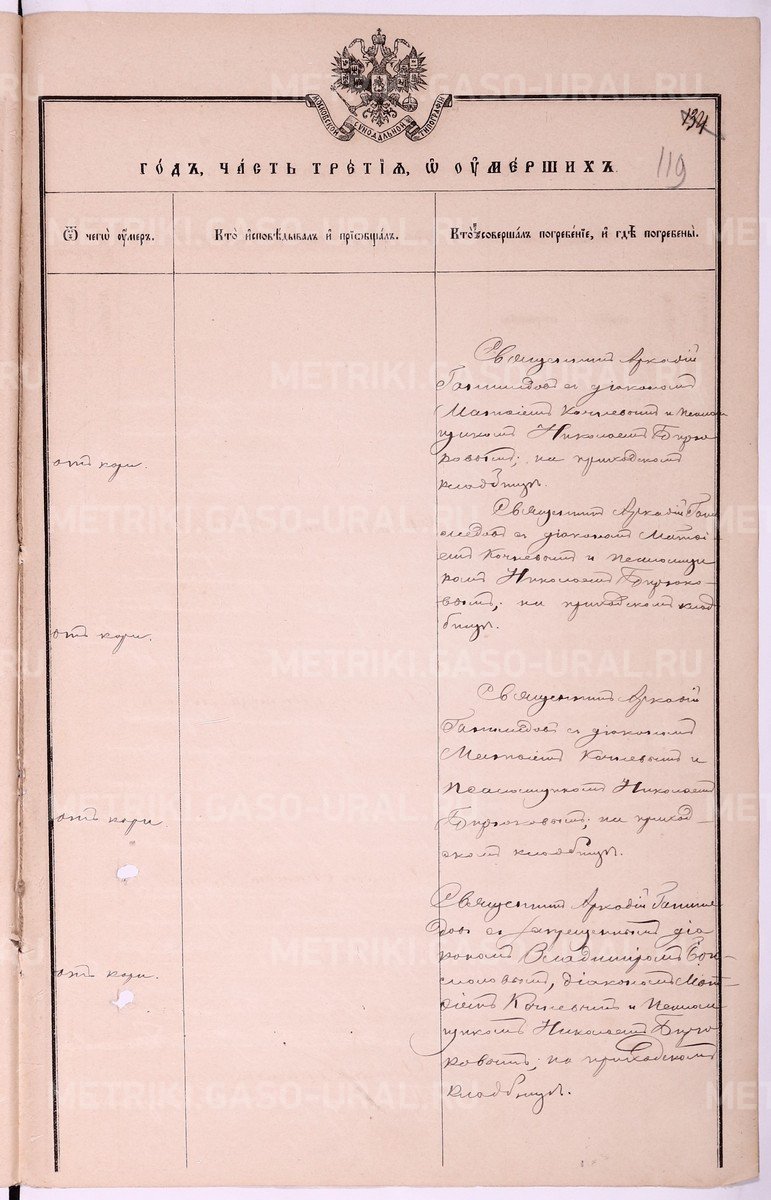 МОСКОВСКОЙ СѴНОДАЛЬНОЙ ТИПОГРАФІИ
134
119
ГО́ДЪ, ЧА́СТЬ ТРЕ́ТІѦ, Ѡ҆ ОУ҆МЕ́РШИХЪ.
Ѿ чегѡ̀ оу҆́меръ.
Кто̀ и҆сповѣ́дывалъ и҆ прїѡбща́лъ.
Кто̀ соверша́лъ погребе́нїе, и҆ гдѣ̀ погребены̀.
Священникъ Аркадій
Ганимедовъ съ діакономъ
Матѳіемъ Кочневымъ и псалом
щикомъ Николаемъ Бирю
ковымъ; на приходскомъ
кладбищѣ.
отъ кори.
Священникъ Аркадій Гани
медовъ съ діакономъ Матѳі
емъ Кочневымъ и псаломщи
комъ Николаемъ Бирюко-
вымъ; на приходскомъ клад
бищѣ.
отъ кори.
Священникъ Аркадій
Ганимедовъ съ діакономъ
Матѳіемъ Кочневымъ и
псаломщикомъ Николаемъ
Бирюковымъ; на приход-
скомъ кладбищѣ.
отъ кори.
Священникъ Аркадій Ганиме
довъ съ запрещеннымъ діа
кономъ Владиміромъ
діакономъ Мат
ѳіемъ Кочневымъ и псалом
щикомъ Николаемъ Бирю
ковымъ; на приходскомъ
кладбищѣ.
отъ кори.
METRIKI.GASO-URAL.RU